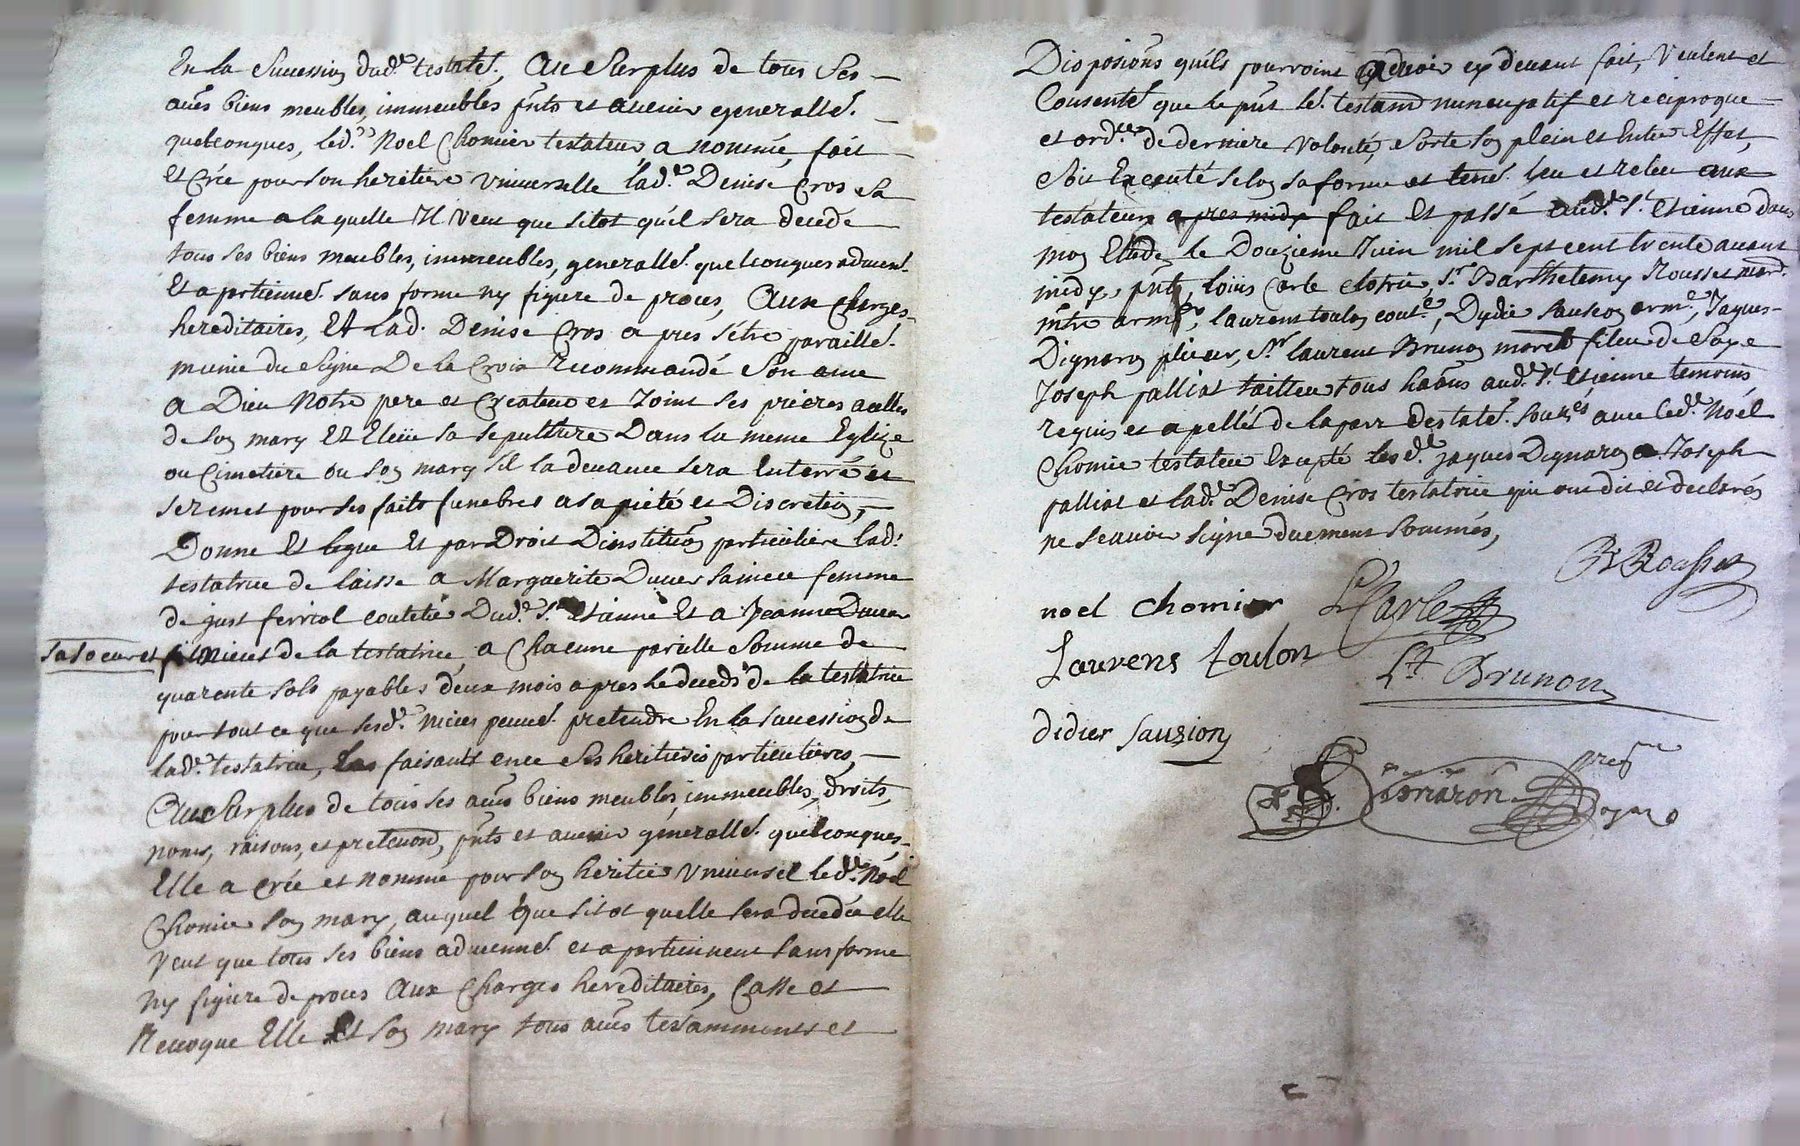 En la Succession dud.t testate.r, Au Surplus de tous Ses
au.s biens meubles, immeubles p.nts et avenir generalle.t
quelconques, led.t Noel Chomier testateur a nommé, fait
et Crée pour son heritiere Universelle lad.te Denise Cros sa
femme a la quelle Il Veut que sitot quil sera decedé
tous ses biens meubles, immeubles, generalle.t quelconques advienne.t
et apartienne.t sans forme ny figure de proces, Aux Charges
hereditaires, Et Lad. Denise Cros apres s'etre paraille.t
munie du Signe De la Croix Recommandé Son ame
a Dieu Notre pere et Createur et Joint ses prieres a celles
de son mary Et Eleüe sa sepulture Dans la meme Eglize
ou Cimetiere ou son mary sil la devance sera Enterré et
se remet pour ses faits funebres a sa pieté et Discretion,
Donne Et legue Et par Droit Dinstitu.on particuliere lad.t
testatrice de laisse a Marguerite Ducer sa niece femme
de just ferriol coutelie Dud.t S.t Etienne Et a Jeanne Ducer
sa soeur et nieces de la testatrice a Chacune pareille Somme de
quarente sols payables deux mois apres le deceds de la testatrice
pour tout ce que sesd.t nieces peuve.t pretendre En la succession de
lad.t testatrice, Les faisants en ce Ses heritieres particulieres,
Au Surplus de tous ses au.s biens meubles, immeubles, droits,
noms, raisons, et preten.ons, p.nts et avenir generalle.t quelconques,
Elle a Crée et nommé pour son heritier Universel led.t Noel
Chomier son mary, auquel que sitot quelle sera decedée elle
veut que tous ses biens advienne.t et apartiennent sans forme
ny figure de proces Aux Charges hereditaires, Casse et
Revoque Elle Et son mary tous au.s testamments et
Disposi.ons quils pourroint avoir cy devant fait, Veulent et
Consente.t que le p.nt le.t testam.t nuncupatif et reciproque
et ord.ce de derniere Volonté, Sorte son plein et Entier Effet,
Soit Executé selon sa forme et tene.r leu et releu aux
testateurs apres midy fait Et passé aud.t S.t Etienne dans
mon Etude le Douzieme Juin mil sept cent trente avant
midy, p.nts, loüis Carle clotrie, S.r Barthelemy Rousset march.d
m.tre arm.er, laurens toulon cout.r, Dydie Sauzion arm.r, Jaques
Dignaron plieur, S.r laurens Brunon march.d fileur de Soye
Joseph palliat tailleur tous ha.ans aud.t S.t Etienne temoins
requis et apellés de la part des testate.s sous.nés avec led.t Noël
Chomier testateur Excepté lesd.t jaques Dignaron et Joseph
palliat et lad.t Denise Cros testatrice qui ont dit et declarés
ne scavoir signe duement sommés,
B Rousset
noel chomier L Carle
Laurens toulon
Lt Brunon
didier sauzion